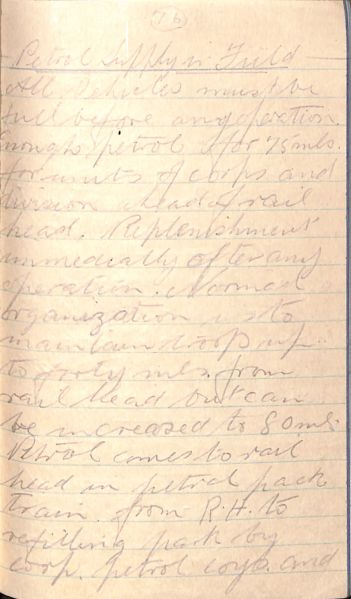 (16)
Petrol Supply in Field
All Vehicles must be
full before any operation
enough petrol for 75 mls.
for units of corps and
division ahead of rail
head. Replenishment
immediatly after any
operation. Normal
organization is to
maintain troops up
to forty mls. from
rail head but can
be increased to 80 mls.
Petrol comes to rail
head in petrol pack
train. from R.H. to
refilling park by
corp. petrol coys. and